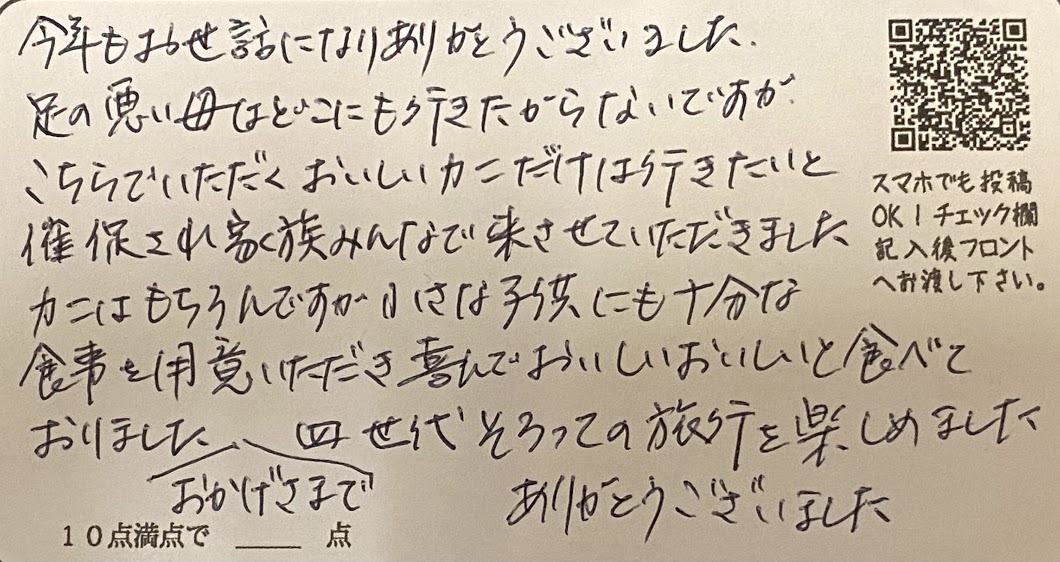 今年もお世話になりありがとうございました.
足の悪い母はどこにも行きたがらないですが.
こちらでいただくおいしいカニだけは行きたいと
催促され家族みんなで来させていただきました
カニはもちろんですが小さな子供にも十分な
食事を用意いただき喜んでおいしいおいしいと食べて
おりました、四世代そろっての旅行を楽しめました
おかげさまで
ありがとうございました
10点満点で ____ 点
スマホでも投稿
OK！チェック欄
記入後フロント
へお渡し下さい。